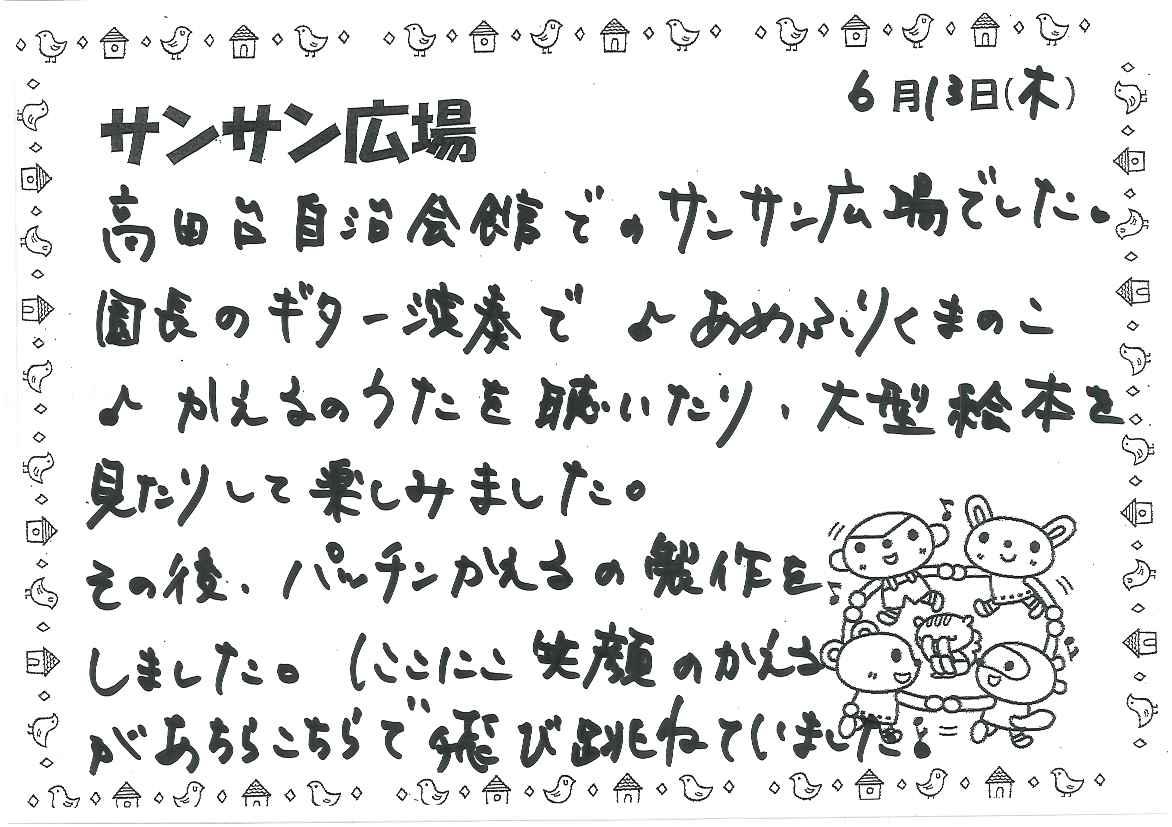 6月13日(木)
サンサン広場
高田台自治会館でのサンサン広場でした。
園長のギター演奏で ♪あめふりくまのこ
♪かえるのうたを聴いたり、大型絵本を
見たりして楽しみました。
その後、パッチンかえるの製作を
しました。にこにこ笑顔のかえる
があちらこちらで飛び跳ねていました!